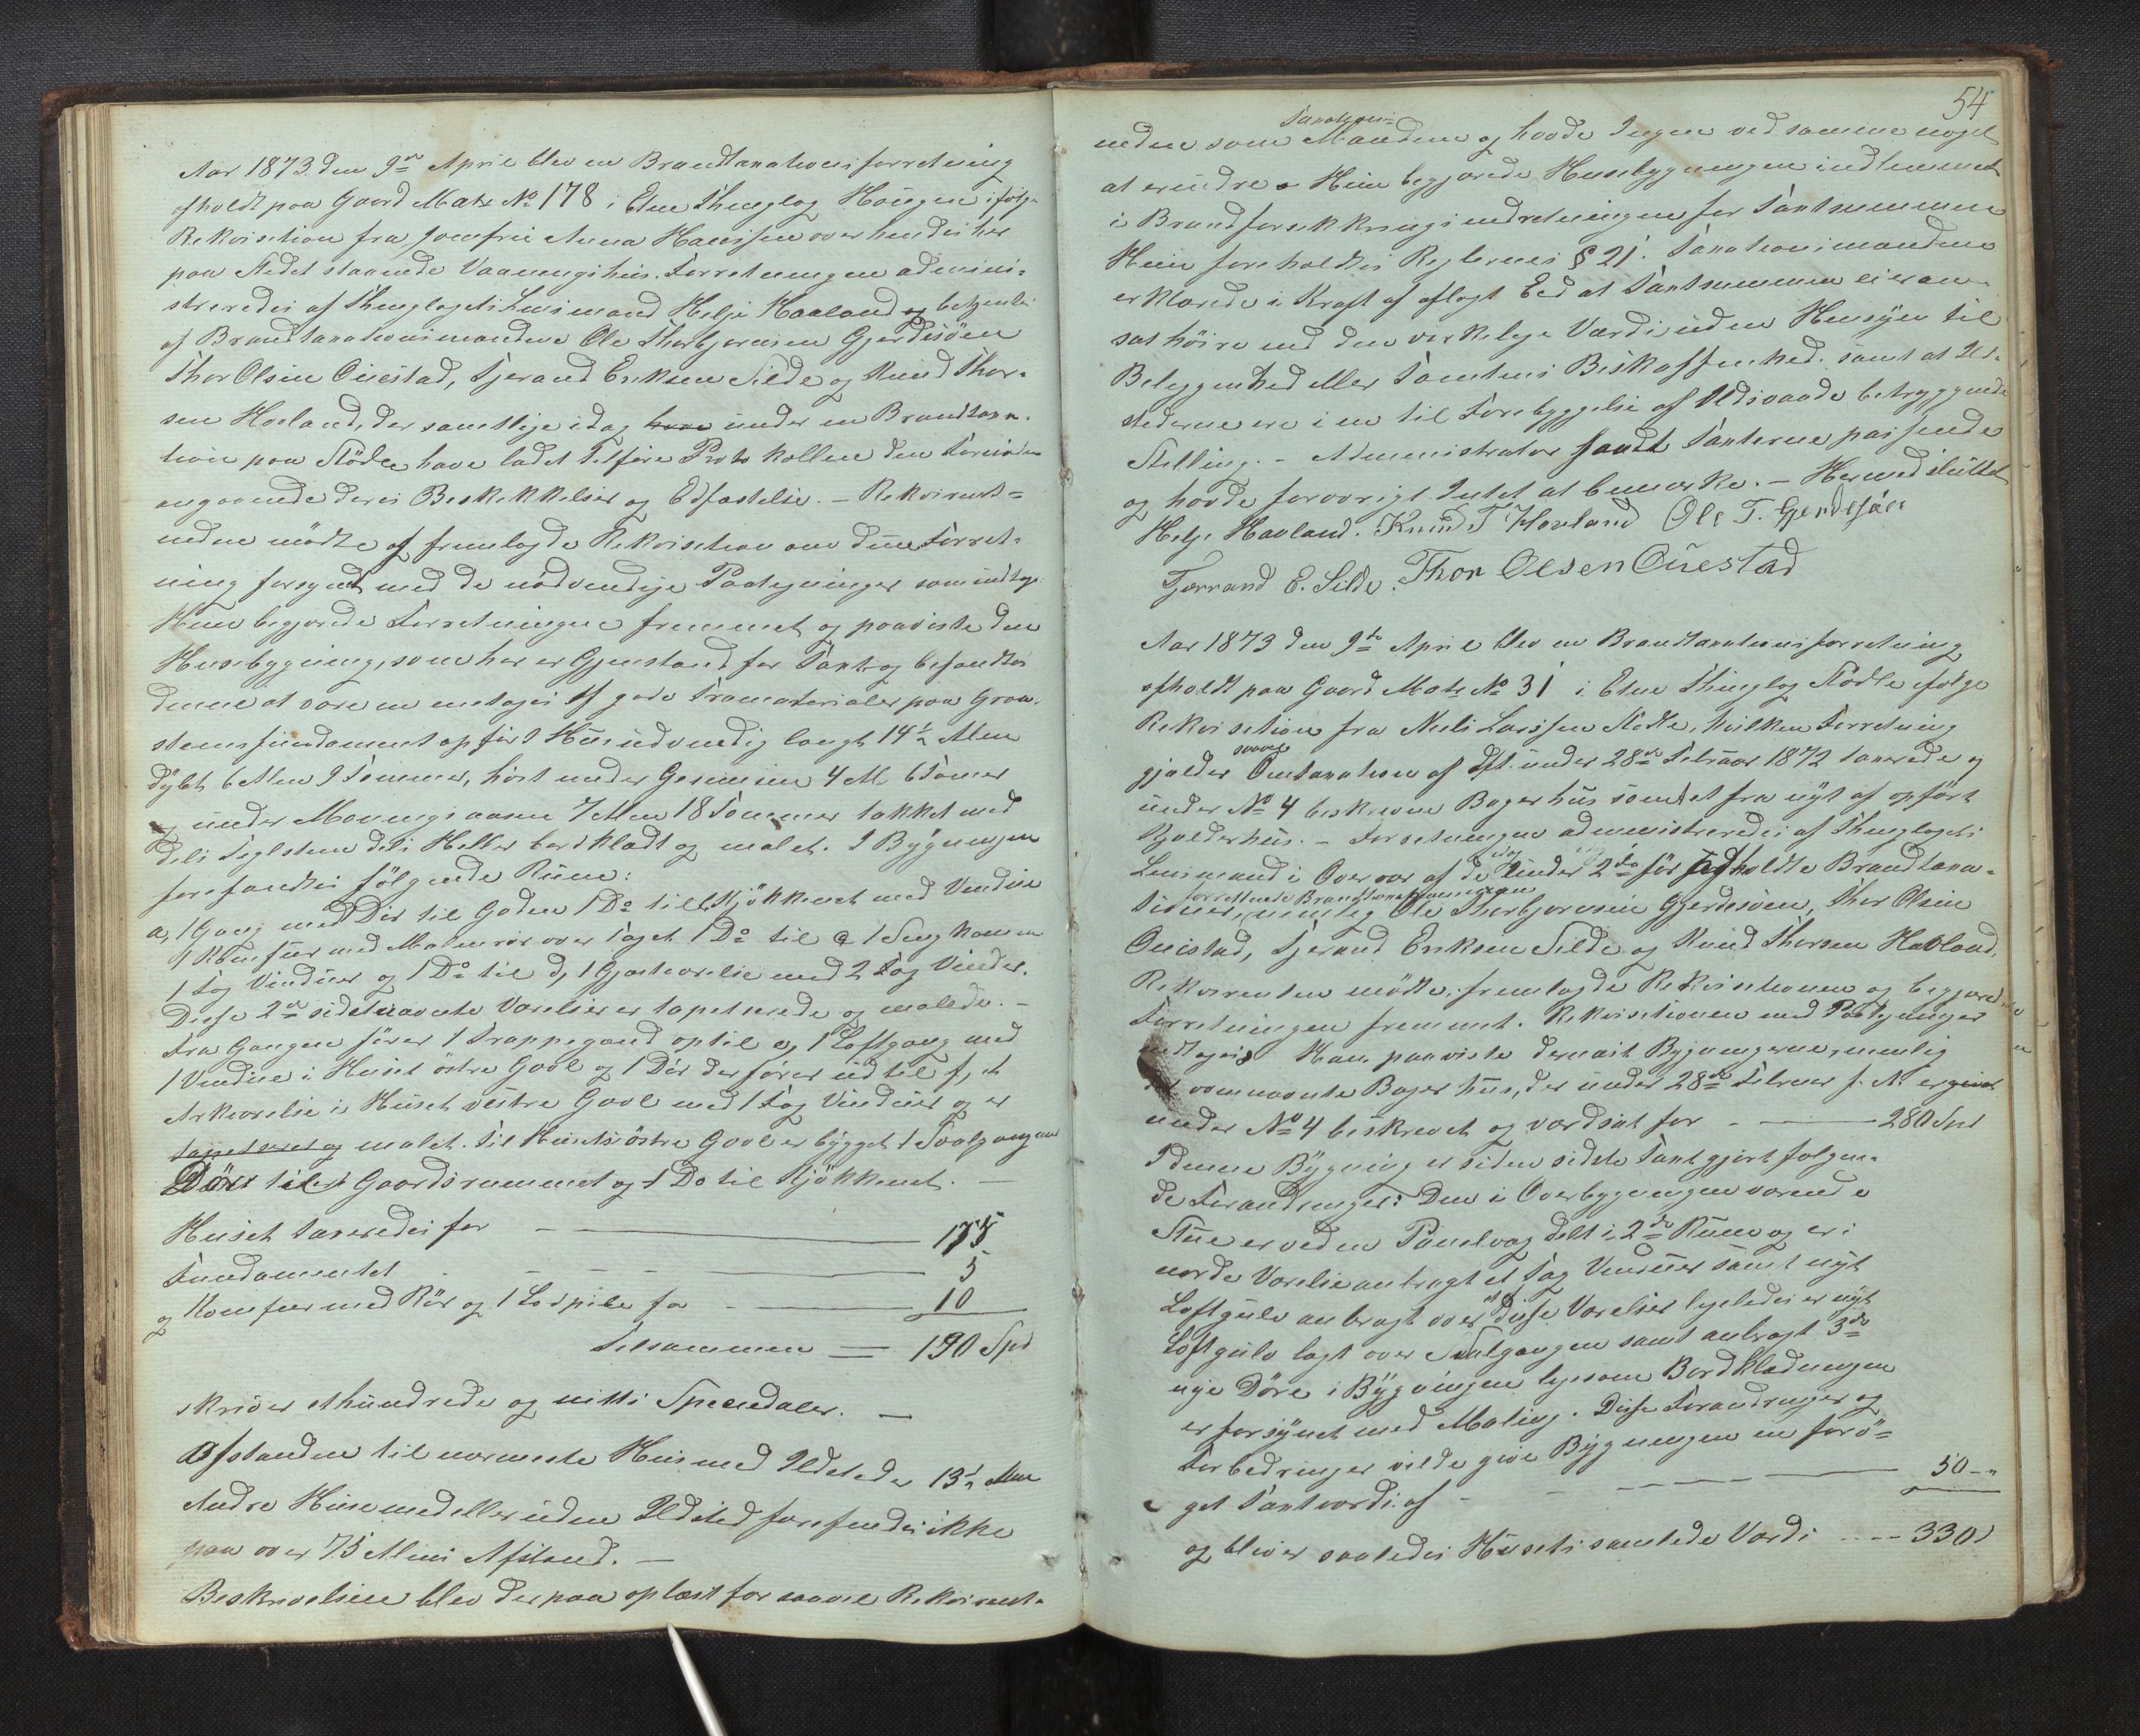 Aar 1873 den 9de April blev en Brandtaxationsforretning
afholdt paa Gaard Matr No 178 i Etne Thinglag Haugen ifølge
Rekvisition fra Jomfru Anna Hansen over hendes her
paa Stedet staaende Vaaningshus. Forretningen admini-
streredes af Thinglagets Lensmand Helje Haaland og betjentes
af Brandtaxationsmændene Ole Thorbjørnsen Gjerdesøen
Thor Olsen Øuestad, Tjerand Eriksen Silde og Knud Thor-
sen Hovland, der samtlige idag have under en Brandtaxa-
tion paa Stødle have ladet Tilføre Protokollen den Fornødne
angaaende deres Beskikkelser og Edfæstelse. – Rekvirent-
inden mødte og fremlagde Rekvisition om denne Forret-
ning forsynet med de nødvendige Paategninger som indtages
Hun begjærede Forretningen fremmet og paaviste den
Husebygning, som her er Gjenstand for Taxt og befandtes
denne at være en enetages af gode Træmaterialer paa Graa-
steensfundament opført Hus udvendig langt 14½ Alen
dybt 6 Alen 9 Tommer, høit under Gesimsen 4 Al 6 Tomer
og under Mønningsaasen 7 Alen 18 Tommer takket med
dels Teglsteen dels Heller bordklædt og malet. I Bygningen
forefandtes følgende Rum:
a, 1 Gang med Dør til Gaden 1 Do til Kjøkkenet med Vindue
1 Komfur med Malmrør over Taget 1 Do til c 1 Sengkammer
1 Fag Vinduer og 1 Do til d, 1 Gjæsteværelse med 2 Fag Vinduer.
Disse 2de sidstnævnte Værelser er tapetserede og malede. –
Fra Gangen fører 1 Trappegand op til e, 1 Loftgang med
1 Vindue i Huset østre Gavl og 1 Dør der fører ud til f, et
Arkværelse i Huset vestre Gavl med 1 Fag Vinduer og er
tapetseret og malet. Til Husets østre Gavl er bygget 1 Svalgang med
Dør til Gaardsrummet og 1 Do til Kjøkkenet. –
Huset taxeredes for – 175
Fundamentet – 5
og Komfur med Rør og 1 Lodpibe for – 10
Tilsammen = 190 Spd
skriver ethundrede og nitti Speciedaler. –
Afstanden til nærmeste Hus med Ildsteder 13½ Alen
Andre Huse med eller uden Ildsted forefindes ikke
paa over 75 Alens Afstand. –
Beskrivelsen blev derpaa oplæst for saavel Rekvirent-
54
inden som Taxations-Mændene og havde Ingen ved samme noget
at erindre. Hun begjærede Husebygningen indlemmet
i Brandforsikkringsindretningen for Taxtsummen
Hun foreholdtes Reglernes § 21. Taxationsmændene
erklærede i Kraft af aflagt Eed at Taxtsummen ei er an-
sat høiere end den verkelige Værdi uden Hensyn til
Beliggenhed eller Tomtens Beskaffenhed, samt at Ild-
stederne ere i en til Forebyggelse af Ildsvaade betryggende
Stilling. – Administrator fandt Taxterne passende
og havde forøvrigt Intet at bemærke. – Hermed sluttet
Helje Haaland. Knud T Hovland Ole T. Gjerdesøen
Tjerrand E. Silde. Thor Olsen Øuestad
Aar 1873 den 9de April blev en Brandtaxationsforretning
afholdt paa Gaard Matr No 31 i Etne Thinglag Stødle ifølge
Rekvisition fra Neels Larssen Stødle, hvilken Forretning
gjælder saavel Omtaxation af Det under 28de Februar 1872 taxerede og
under No 4 beskrevne Bagerhus samt et fra nyt af opført
Kjælderhus. – Forretningen administreredes af Thinglagets
Lensmand i Overvær af de idag under 2de før afholdte Brandtaxa-
tioner, forrettende Brandtaxationsmænd nemlig Ole Thorbjørnsen Gjerdesøen, Thor Olsen
Øuestad, Tjerand Eriksen Silde og Knud Thorsen Hovland.
Rekvirenten mødte, fremlagde Rekvisitionen og begjærede
Forretningen fremmet. Rekvisitionen med Paategninger
indtages. Han paaviste dernæst Bygningerne, nemlig
ovennævnte Bagerhus, der under 28de Februar f. A. er
under No 4 beskrevet og værdsat for – 280 Spd
I denne Bygning er siden sidste Taxt gjort følgen-
de Forandringer: Den i Overbygningen værende
Stue er ved en Panelvæg delt i 2de Rum og er i
nordre Værelse anbragt et Fag Vinduer samt nyt
Loftgulv anbragt over disse Værelser ligeledes er nyt
Loftgulv lagt over Svalgangen samt anbragt 3de
nye Døre i Bygningen ligesom Bordklædningen
er forsynet med Maling. Disse Forandringer og
Forbedringer vilde give Bygningen en forø-
get Taxtværdi af – 50 –„
og bliver saaledes Husets samlede Værdi – 330